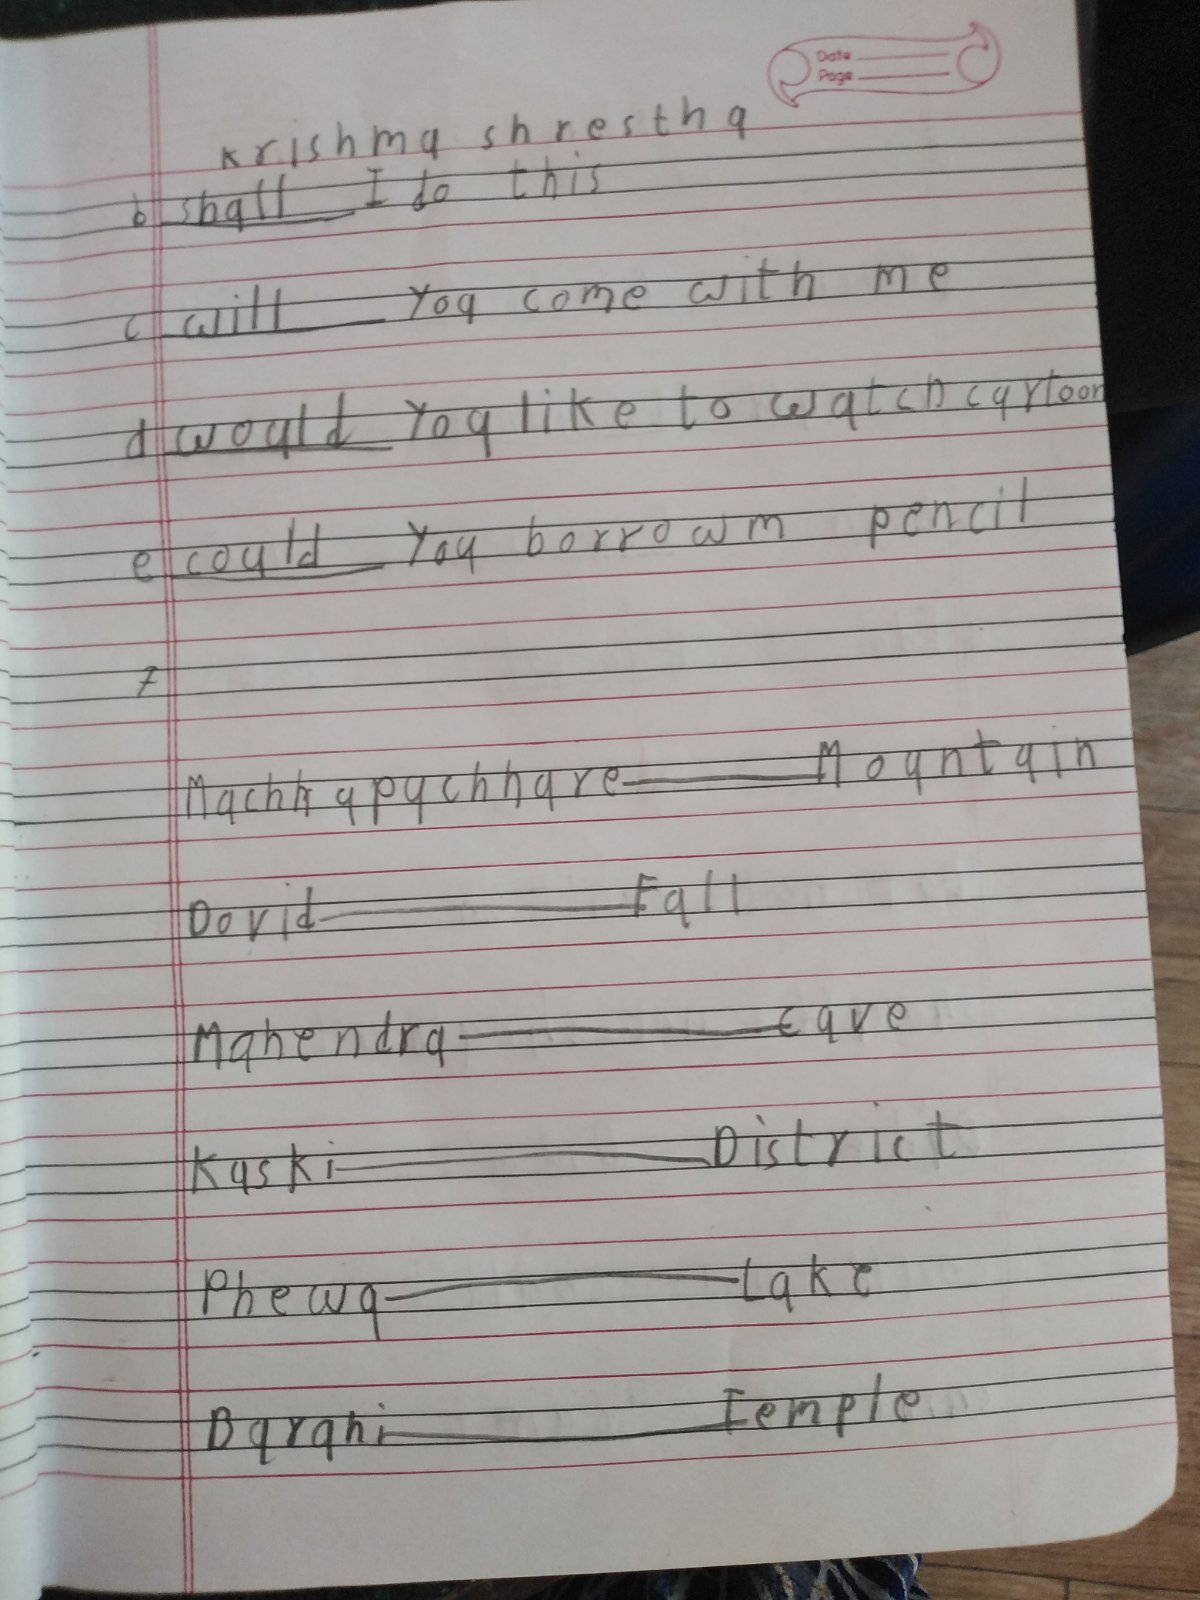 Date
Page
Krishma shrestha
b shall I do this
c will You come with me
d would You like to watch cartoon
e could You borrowm pencil
7
Machhapuchhare Mountain
David Fall
Mahendra cave
Kaski District
Phewa Lake
Barahi Temple